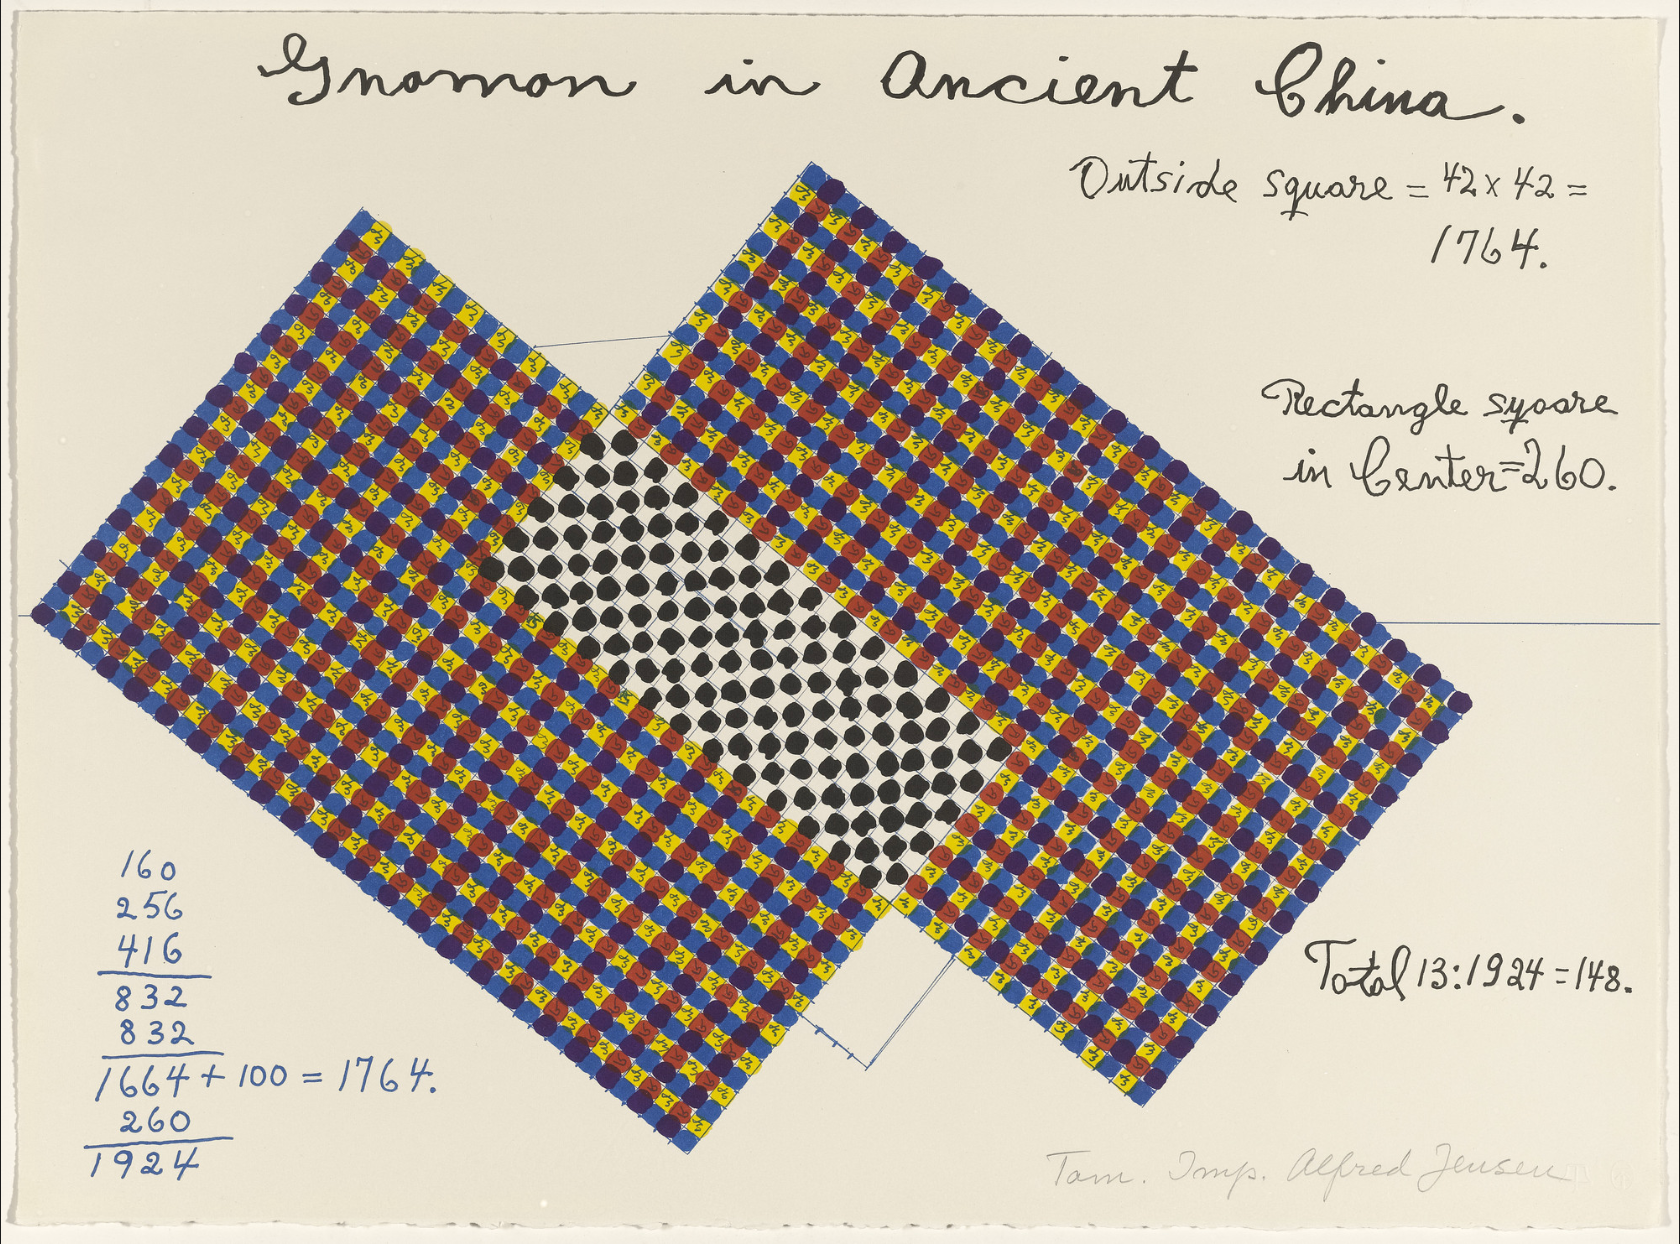 Gnomon in Ancient China.
Outside square = 42 x 42 =
1764.
Rectangle syoare
in Center=260.
160
256
416
832
832
1664 + 100 = 1764.
260
1924
Total 13:1924 = 148.
Tam. Imp. Alfred Jensen